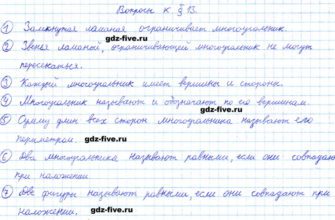 Вопросы к § 13.
① Замкнутая ломаная ограничивает многоугольник.
gdz-five.ru
② Звенья ломаной, ограничивающей многоугольник не могут
пересекаться.
gdz-five.ru
③ Каждый многоугольник имеет вершины и стороны.
gdz-five.ru
④ Многоугольник называют и обозначают по его вершинам.
⑤ Сумму длин всех сторон многоугольника называют его
gdz-five.ru
периметром.
⑥ Два многоугольника называют равными, если они совпадают
при наложении.
gdz-five.ru
⑦ Две фигуры называют равными, если они совпадают при
наложении.
gdz-five.ru